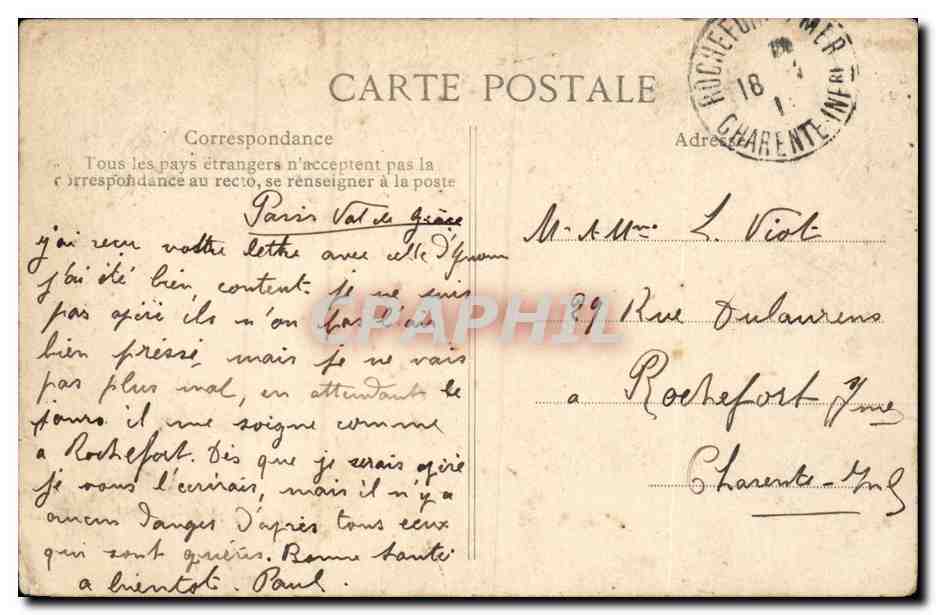 CARTE POSTALE
ROCHEFORT S MER
18
CHARENTE INFRE
Correspondance
Tous les pays étrangers n'acceptent pas la
correspondance au recto, se renseigner à la poste
Adresse
Paris Val de Grâce
j'ai recu vottre lettre avec celle d'Yvonn
j'ai été bien content. je ne suis
pas opéré ils n'on pas l'air
bien préssé, mais je ne vais
pas plus mal, en attendant le
jours il me soigne comme
a Rochefort. Dès que je serais opéré
je vous l'ecrirais, mais il n'y a
aucun danger d'après tous ceux
qui sont guéris. Bonne santé
a bientot. Paul.
Mr et Mme L. Viot
29 Rue Dulaurens
a Rochefort s/mer
Charente-Inf
CPAPHIL